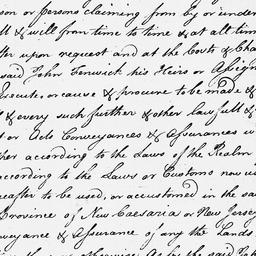 son or Persons claiming from by or under
ll & will from time to time & at all time
fter upon request and at the Costs & Cha
said John Fenwick his Heirs or Assign
Execute, or cause & procure to be made &
l & every such further & other lawfull &
t or Acts Conveyances & Assurances w
her according to the Laws of the Realm
according to the Laws or Customs now us
eafter to be used, or accustomed in the sa
Province of New Caesaria or New Jersey
veyance & Assurance of any the Lands
otherwise As by the said